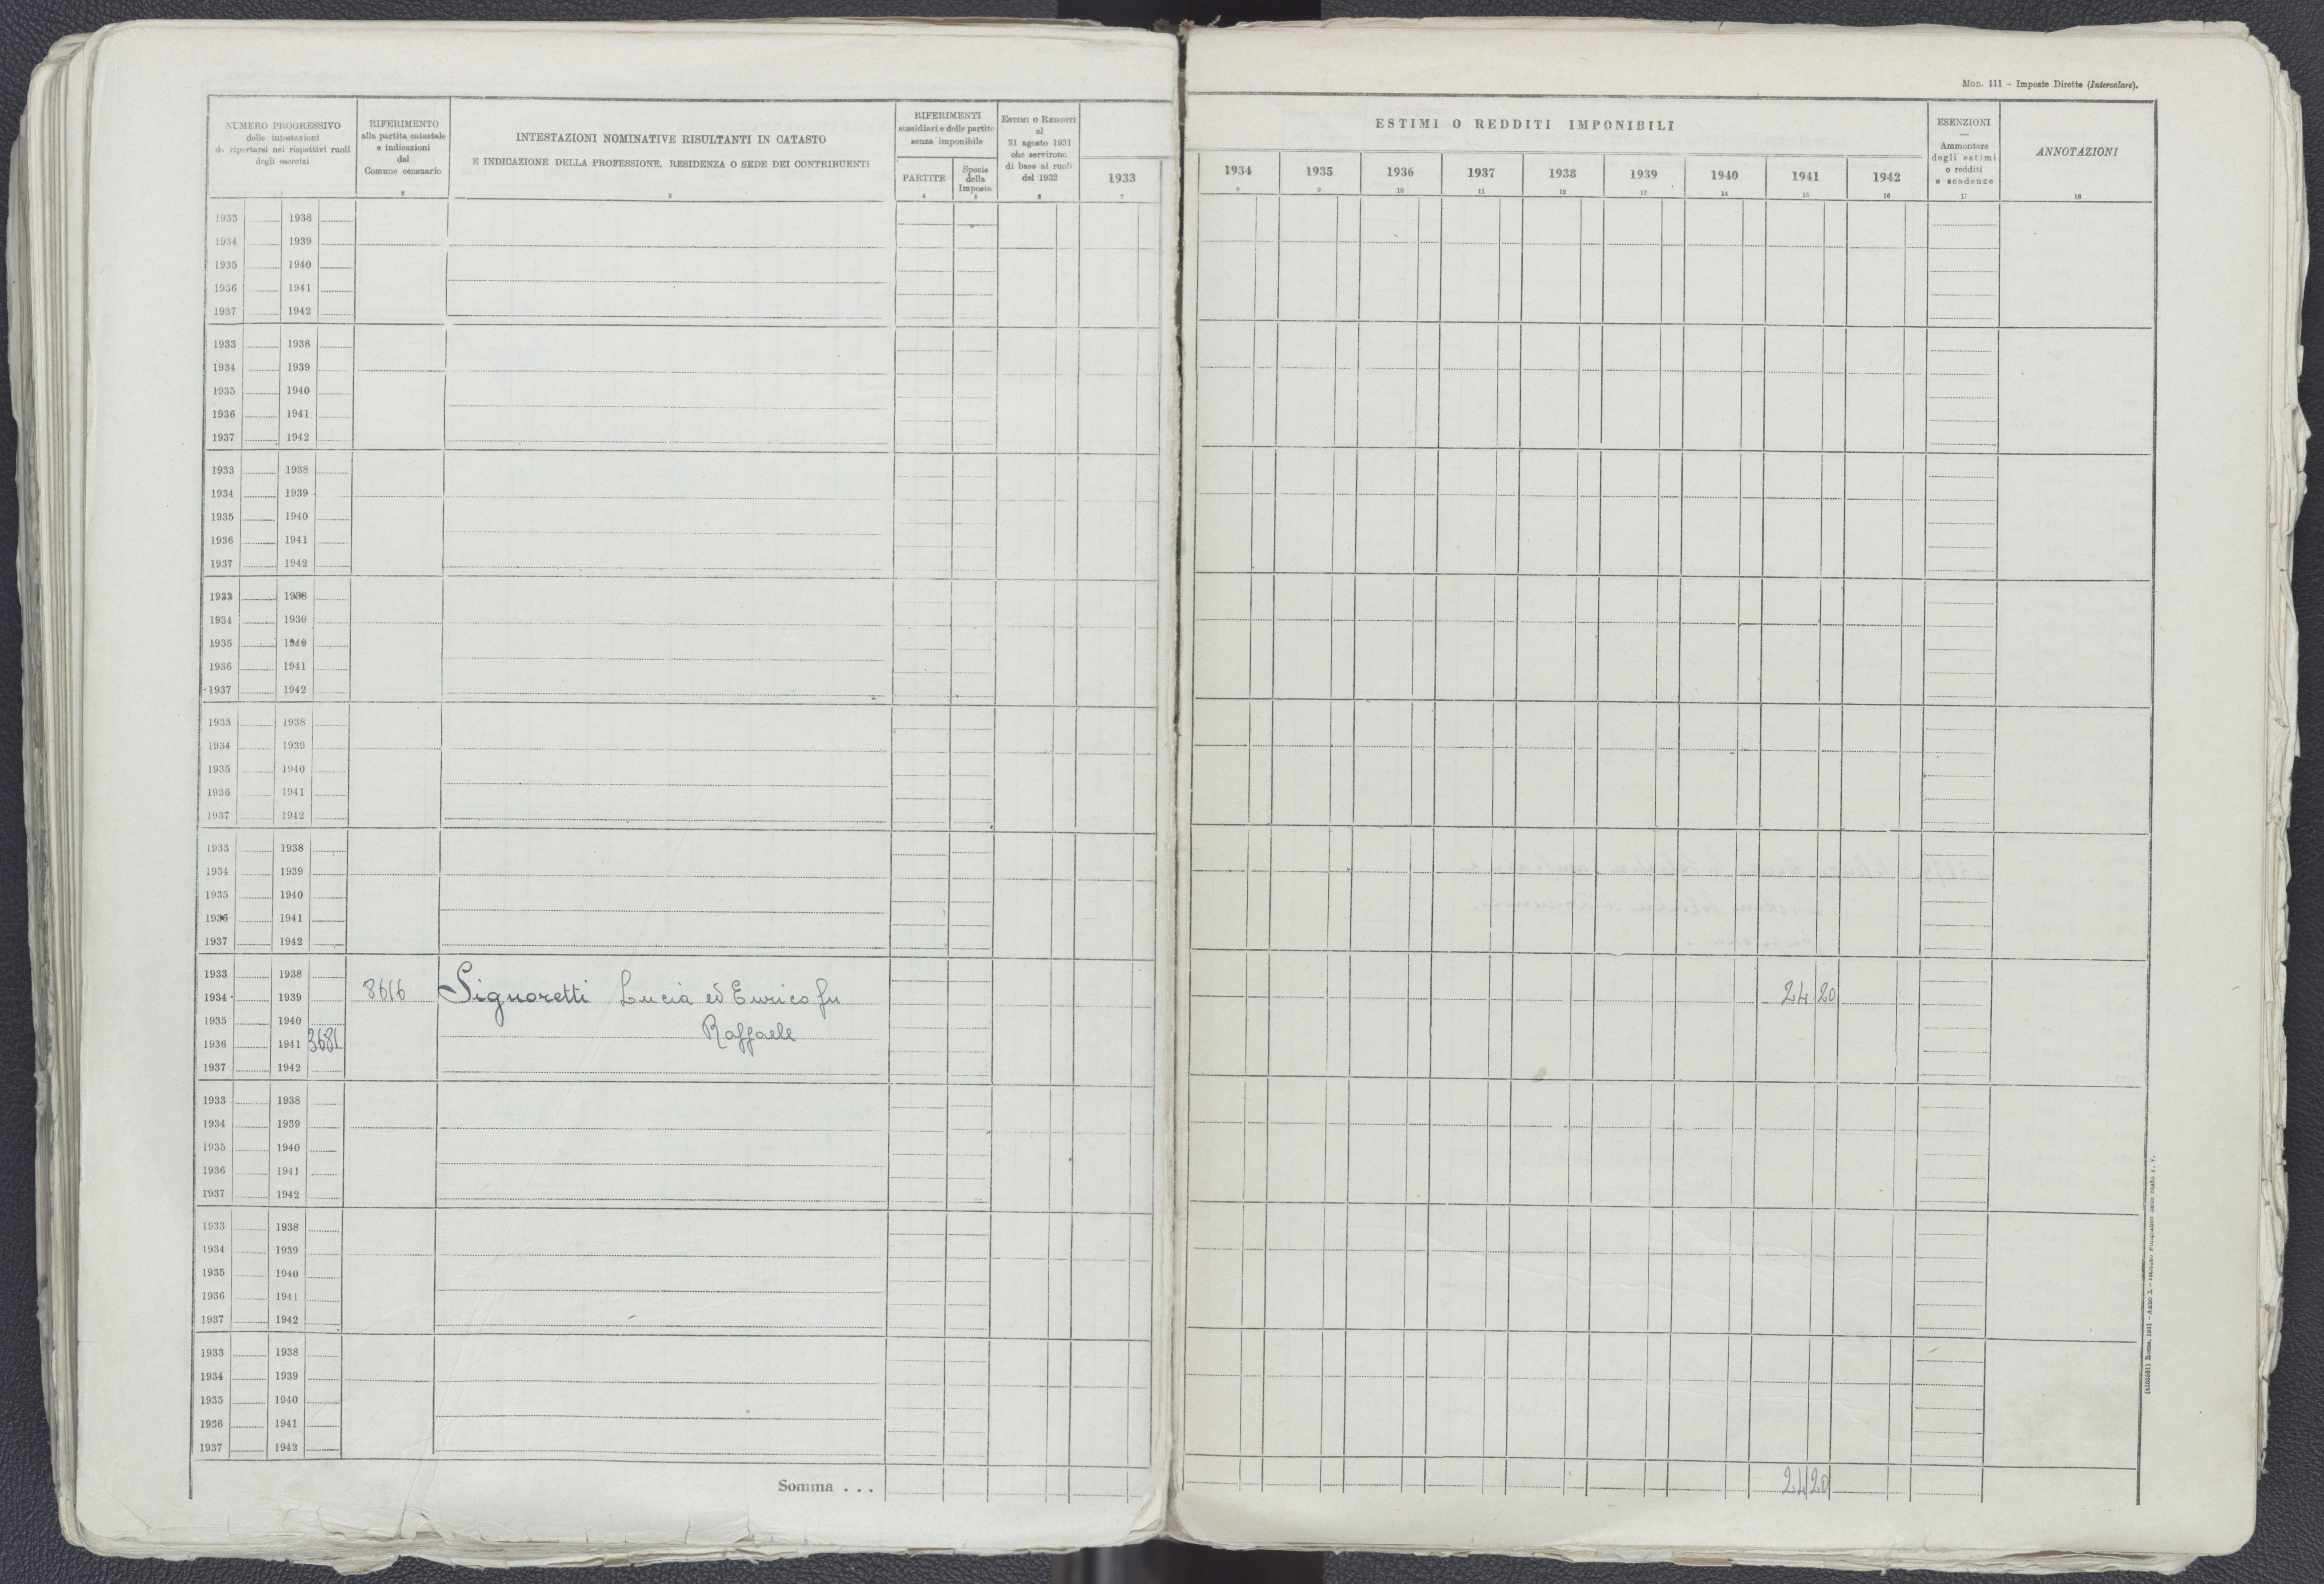 Mod. 111 - Imposte Dirette (Intercalare).
NUMERO PROGRESSIVO
delle intestazioni
da riportarsi nei rispettivi ruoli
degli esercizi
RIFERIMENTO
alla partita catastale
e indicazioni
del
Comune censuario
2
INTESTAZIONI NOMINATIVE RISULTANTI IN CATASTO
E INDICAZIONE DELLA PROFESSIONE, RESIDENZA O SEDE DEI CONTRIBUENTI
3
RIFERIMENTI
sussidiari e delle partite
senza imponibile
PARTITE
4
Specie
della
Imposta
5
ESTIMI O REDDITI
al
31 agosto 1931
che servirono
di base ai ruoli
del 1932
6
1933
7
ESTIMI O REDDITI IMPONIBILI
1934 1935 1936 1937 1938 1939 1940 1941 1942
8 9 10 11 12 13 14 15 16
ESENZIONI
—
Ammontare
degli estimi
o redditi
e scadenze
17
ANNOTAZIONI
18
1933 1938
1934 1939
1935 1940
1936 1941
1937 1942
1933 1938
1934 1939
1935 1940
1936 1941
1937 1942
1933 1938
1934 1939
1935 1940
1936 1941
1937 1942
1933 1938
1934 1939
1935 1940
1936 1941
1937 1942
1933 1938
1934 1939
1935 1940
1936 1941
1937 1942
1933 1938
1934 1939
1935 1940
1936 1941
1937 1942
1933 1938
1934 1939 8616 Signoretti Lucia ed Enrico fu 24 20
1935 1940 Raffaele
1936 1941 3681
1937 1942
1933 1938
1934 1939
1935 1940
1936 1941
1937 1942
1933 1938
1934 1939
1935 1940
1936 1941
1937 1942
1933 1938
1934 1939
1935 1940
1936 1941
1937 1942
Somma . . . 24 20